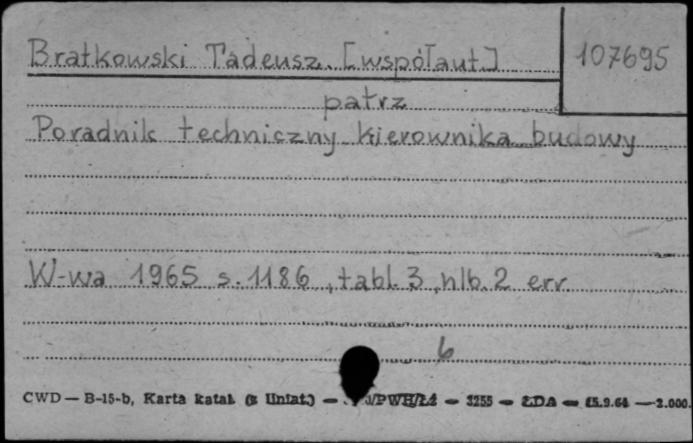 Bratkowski Tadeusz [współaut]
107695
patrz
Poradnik techniczny kierownika budowy
W-wa 1965 s. 1186, tabl. 3, nlb. 2 err.
6
CWD — B-15-b, Karta katal. (z liniat.) — /PWH/Łd — 3255 — ŁDA — 15.9.64 — 2.000.